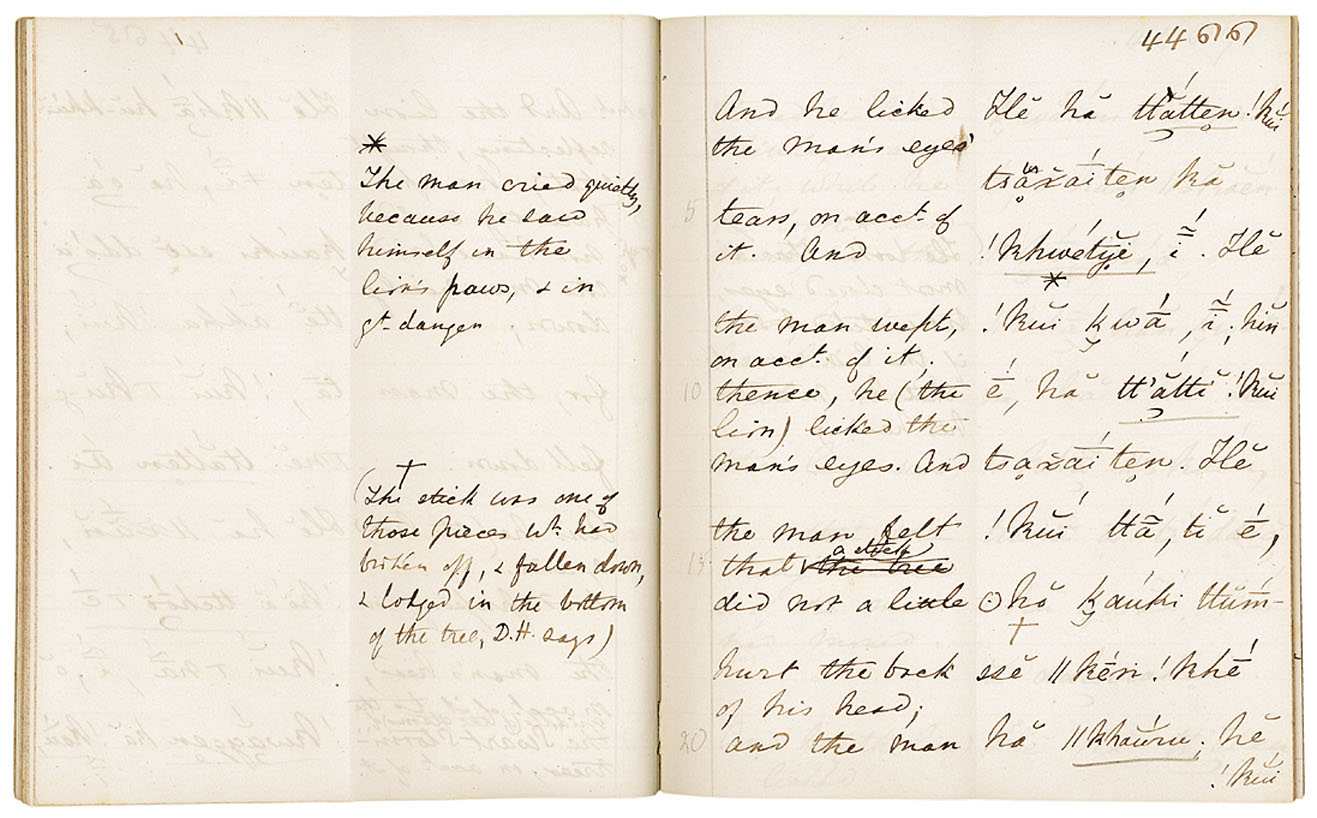 *
The man cried quietly,
because he saw
himself in the
lion's paws, & in
gt. danger
†
(The stick was one of
those pieces wh. had
broken off, & fallen down,
& lodged in the bottom
of the tree, D.H. says)
4466
And he licked
the man's eyes'
5 tears, on acct. of
it. And
the man wept,
on acct. of it;
10 thence, he (the
lion) licked the
man's eyes. And
the man felt
a stick
15 that the tree
did not a little
hurt the back
of his head;
20 and the man
Hĕ hă !kŭi
kă
!khwétyĕ, ĩ́. Hĕ
*
!kŭi ḵwá̄, ĩ́; hĭn
é̄, hă !kŭi
Hĕ
!kŭi ttã́, tĭ é̄,
ʘhŏ ḵáuḵi ttŭḿ-
†
ssĕ ǁkĕ́n !khé̄
hă ǁkhaúru; hĕ
!kŭi